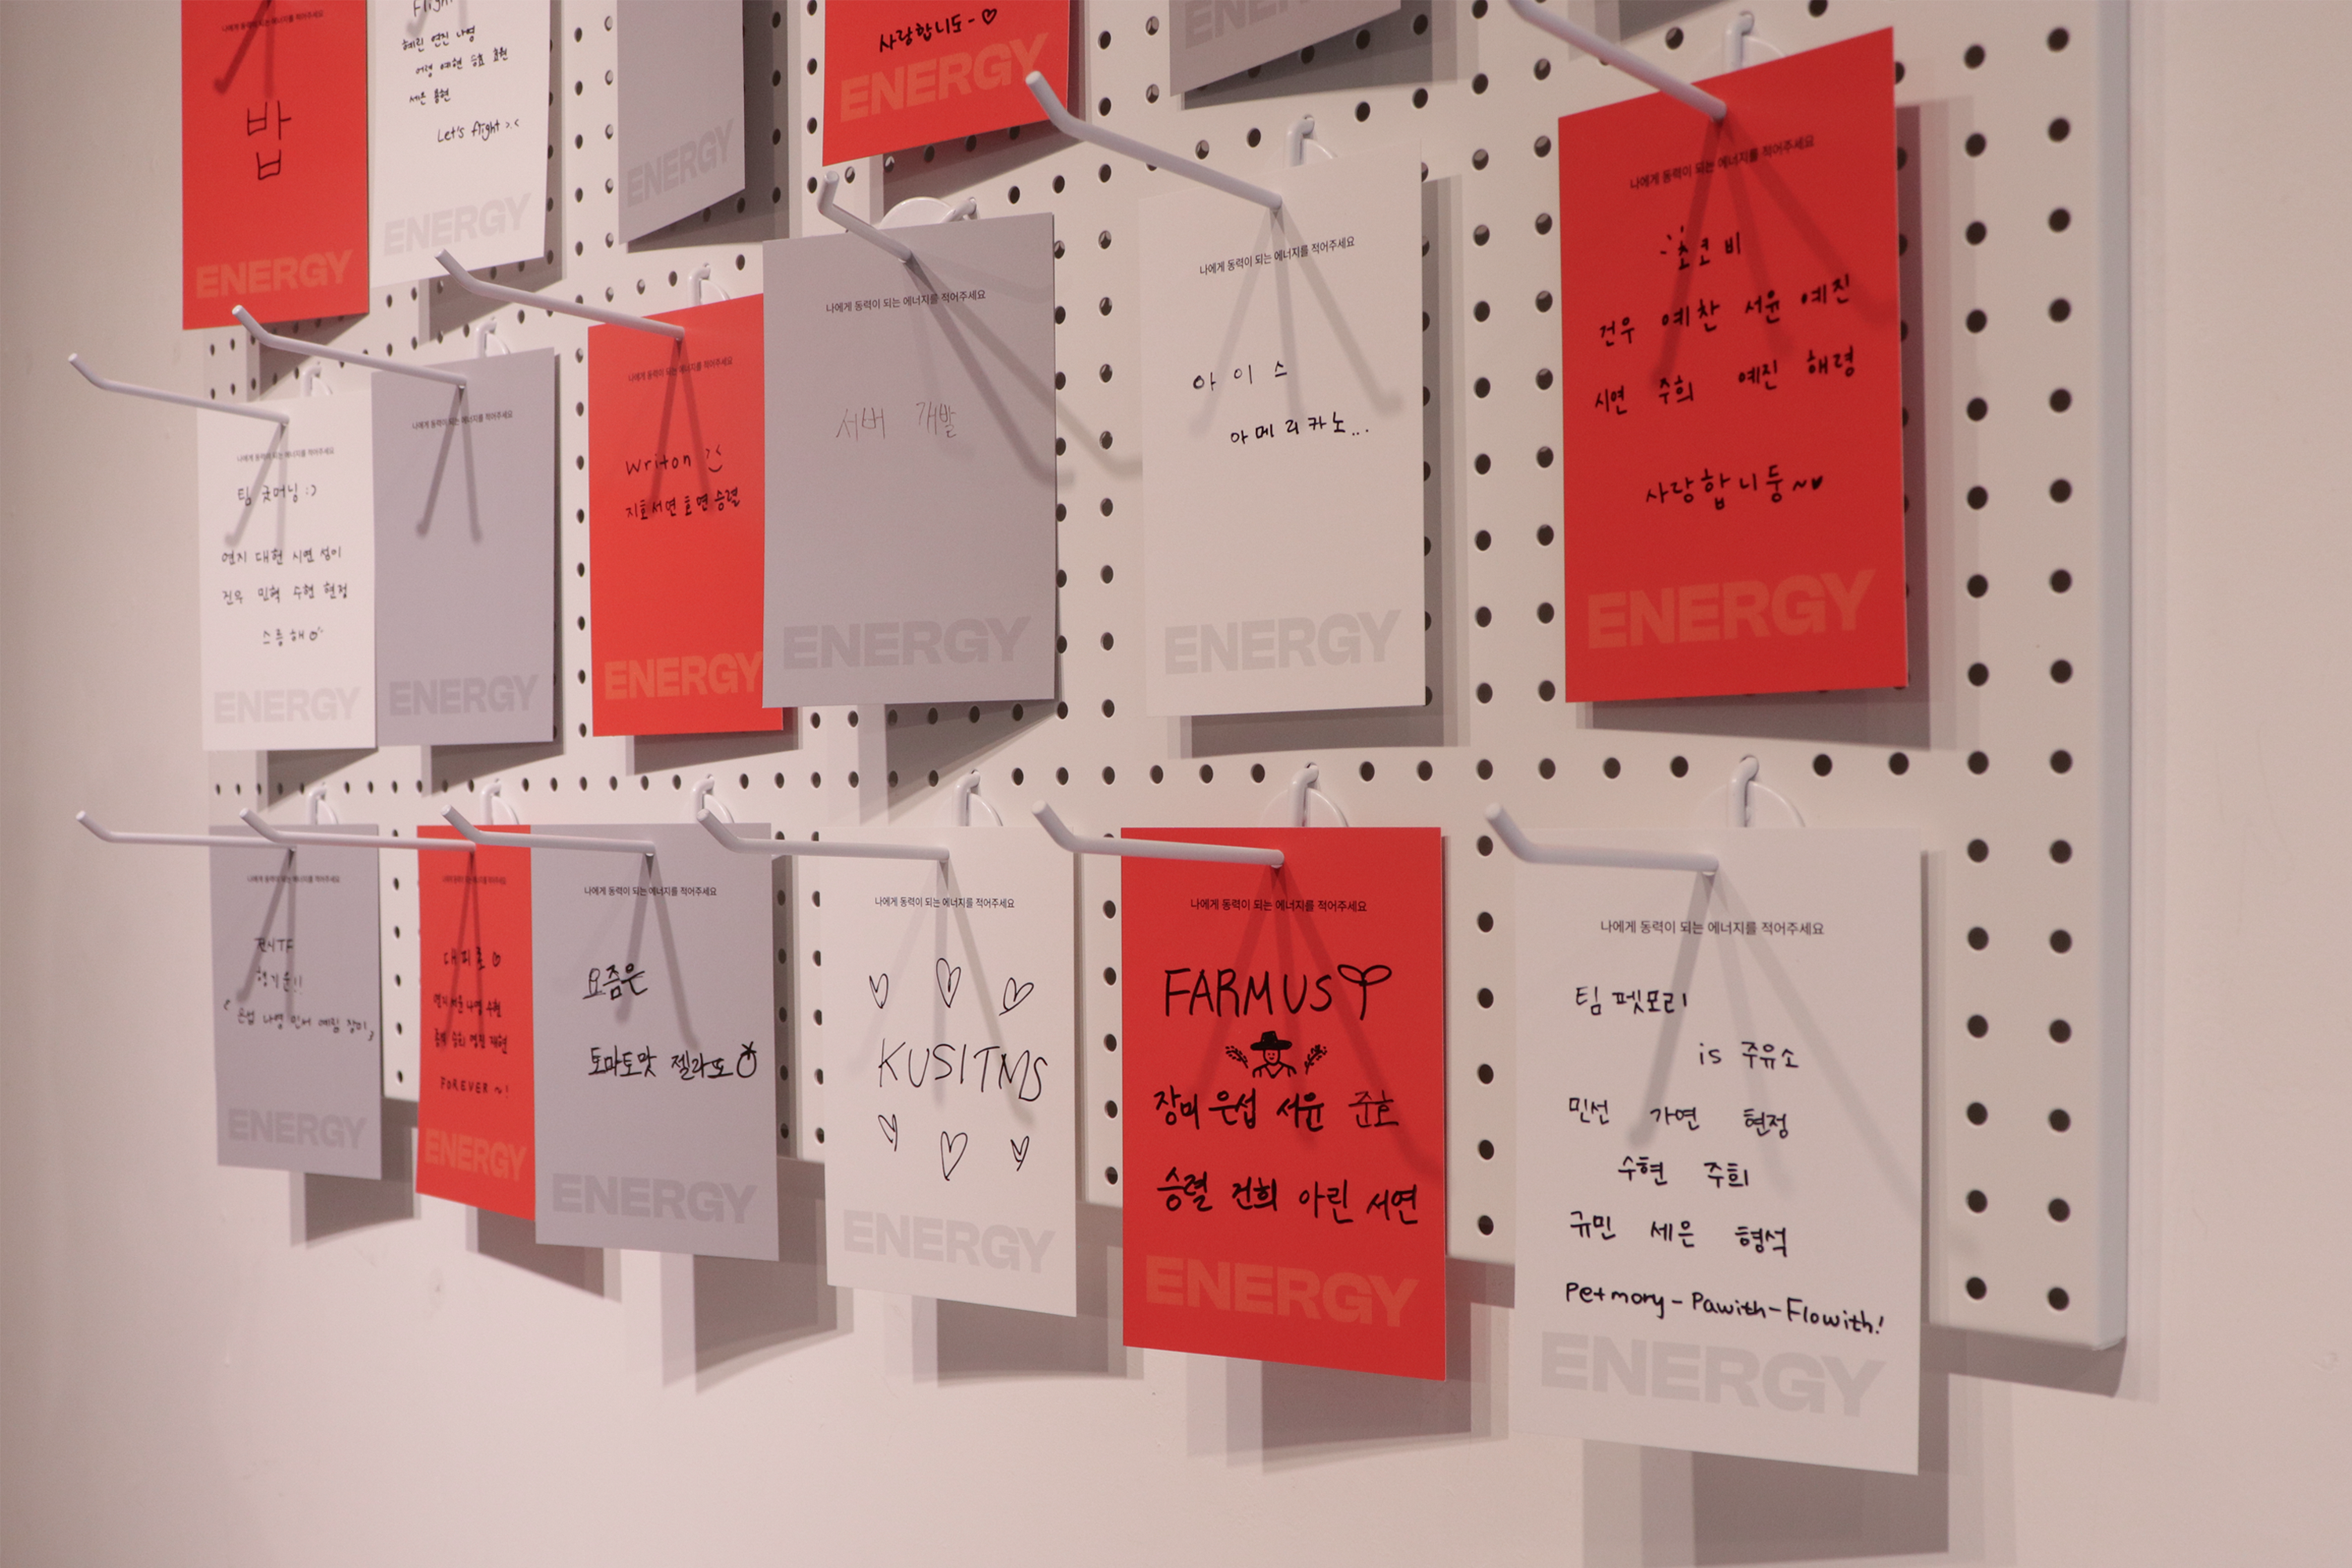 나에게 동력이 되는 에너지를 적어주세요
밥
ENERGY
혜린 연진 나영
세은 용현
Let's flight >.<
ENERGY
ENERGY
사랑합니도-♡
ENERGY
ENERGY
나에게 동력이 되는 에너지를 적어주세요
팀 굿머닝 :)
연지 대현 시연 성이
건우 민혁 수현 현정
스릉해
ENERGY
나에게 동력이 되는 에너지를 적어주세요
ENERGY
나에게 동력이 되는 에너지를 적어주세요
Writon
지호 서연 효연 승렬
ENERGY
나에게 동력이 되는 에너지를 적어주세요
서버 개발
ENERGY
나에게 동력이 되는 에너지를 적어주세요
아이스
아메리카노...
ENERGY
나에게 동력이 되는 에너지를 적어주세요
초코비
건우 예찬 서윤 예진
시연 주희 예진 해령
사랑합니둥~♥
ENERGY
나에게 동력이 되는 에너지를 적어주세요
전시TF
은섭 나영 민서 예림 장미
ENERGY
나에게 동력이 되는 에너지를 적어주세요
대피로
FOREVER ~!
ENERGY
나에게 동력이 되는 에너지를 적어주세요
요즘은
토마토맛 젤라또
ENERGY
나에게 동력이 되는 에너지를 적어주세요
KUSITMS
ENERGY
나에게 동력이 되는 에너지를 적어주세요
FARMUS
장미 은섭 서윤 준호
승렬 건희 아린 서연
ENERGY
나에게 동력이 되는 에너지를 적어주세요
팀 펫모리
is 주유소
민선 가연 현정
수현 주희
규민 세은 형석
Petmory-Pawith-Flowith!
ENERGY